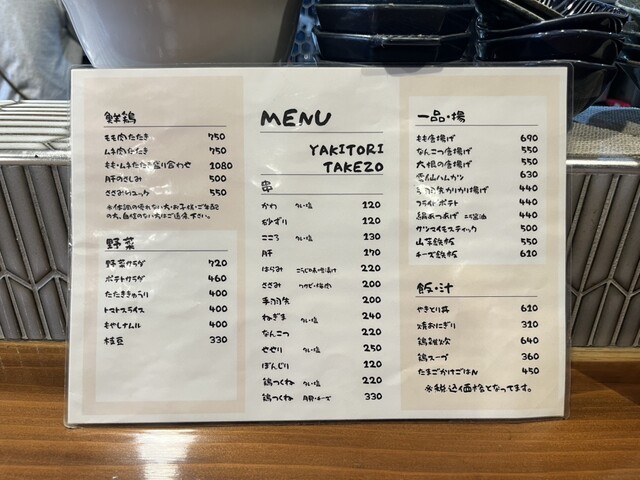 鮮鶏
もも肉たたき 750
ムネ肉たたき 750
もも・ムネたたき盛り合わせ 1080
肝のさしみ 500
ささみジュック 550
※体調の優れない方・お子様・ご年配
の方、自信のない方はご遠慮下さい。
野菜
野菜サラダ 720
ポテトサラダ 460
たたききゅうり 400
トマトスライス 400
もやしナムル 400
枝豆 330
MENU
YAKITORI
TAKEZO
串
かわ タレ・塩 120
砂ずり 120
こころ タレ・塩 130
肝 170
はらみ 220
ささみ ワサビ・梅肉 200
手羽先 200
ねぎま タレ・塩 240
なんこつ 220
せせり タレ・塩 250
ぼんじり 120
鶏つくね タレ・塩 220
鶏つくね 月見・チーズ 330
一品・揚
もも唐揚げ 690
なんこつ唐揚げ 550
大根の唐揚げ 550
雲仙ハムカツ 630
手羽先カリカリ揚げ 440
フライドポテト 440
絹あつあげ 440
サツマイモスティック 500
山芋鉄板 550
チーズ鉄板 610
飯・汁
やきとり丼 610
焼おにぎり 310
鶏雑炊 640
鶏スープ 360
たまごかけごはん 450
※税込価格となってます。